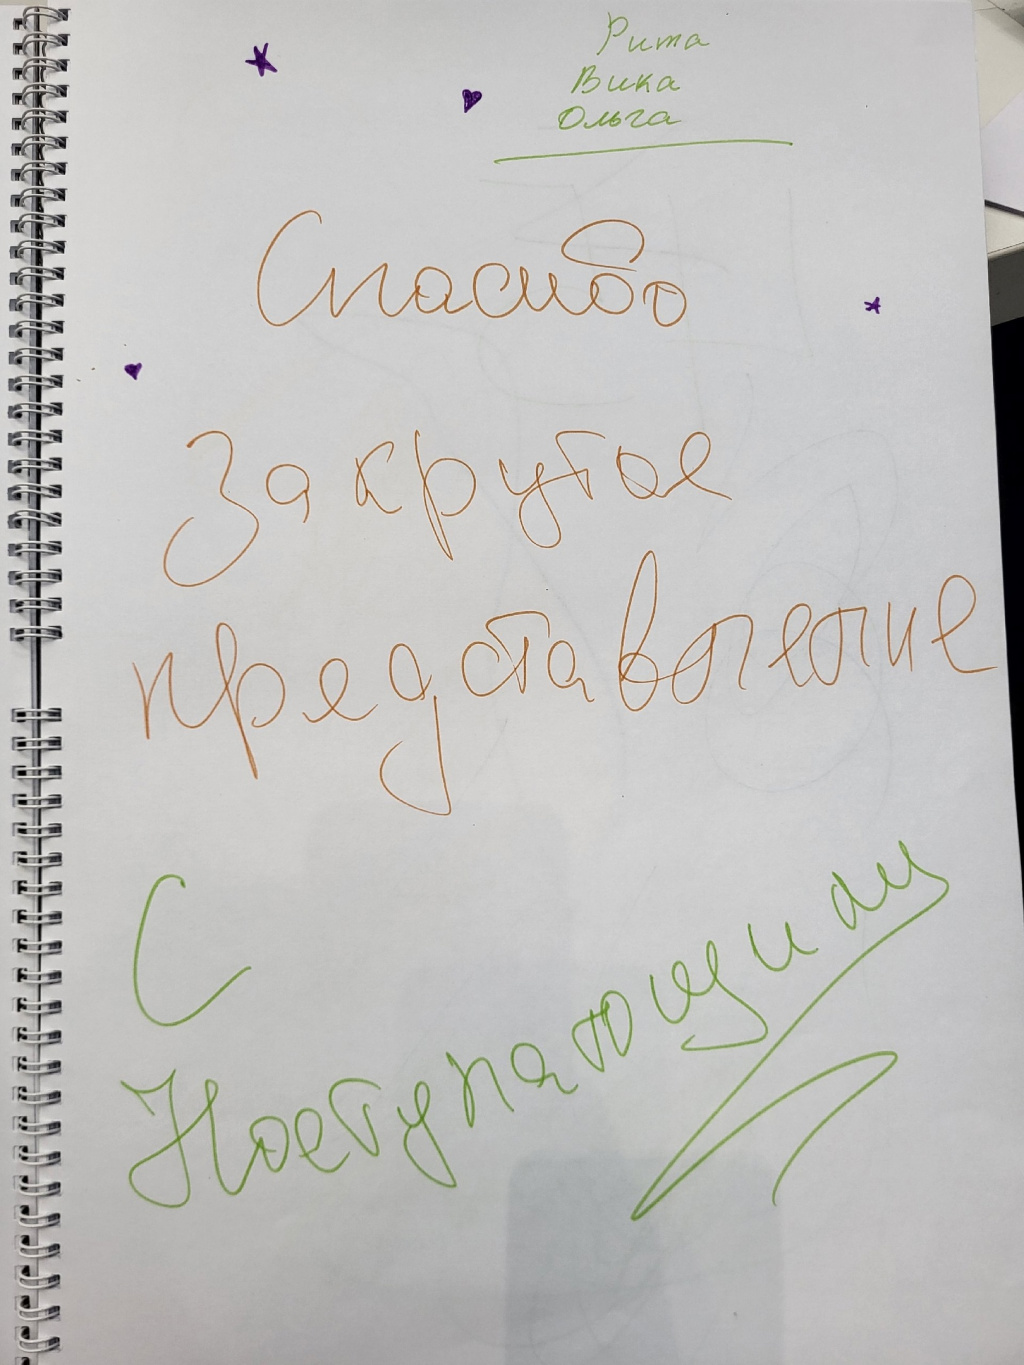 Рита
Вика
Ольга
Спасибо
За крутое
представление
С
Наступающим